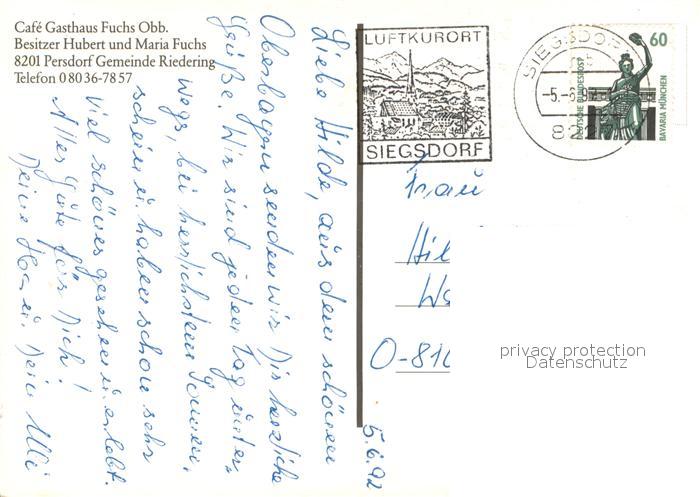 Café Gasthaus Fuchs Obb.
Besitzer Hubert und Maria Fuchs
8201 Persdorf Gemeinde Riedering
Telefon 0 80 36-78 57
LUFTKURORT
SIEGSDORF
SIEGSDORF
-5.-6.92
822
60
DEUTSCHE BUNDESPOST
BAVARIA MÜNCHEN
5.6.92
Liebe Hilde, aus dem schönen
Oberbayern senden wir Dir herzliche
Grüße. Wir sind jeden Tag unter-
wegs, bei herrlichstem Sonnen-
schein u. haben schon sehr
viel schönes gesehen u. erlebt.
Alles Gute für Dich!
Deine u. Dein Ulli
Frau
Hil
O-810
privacy protection
Datenschutz